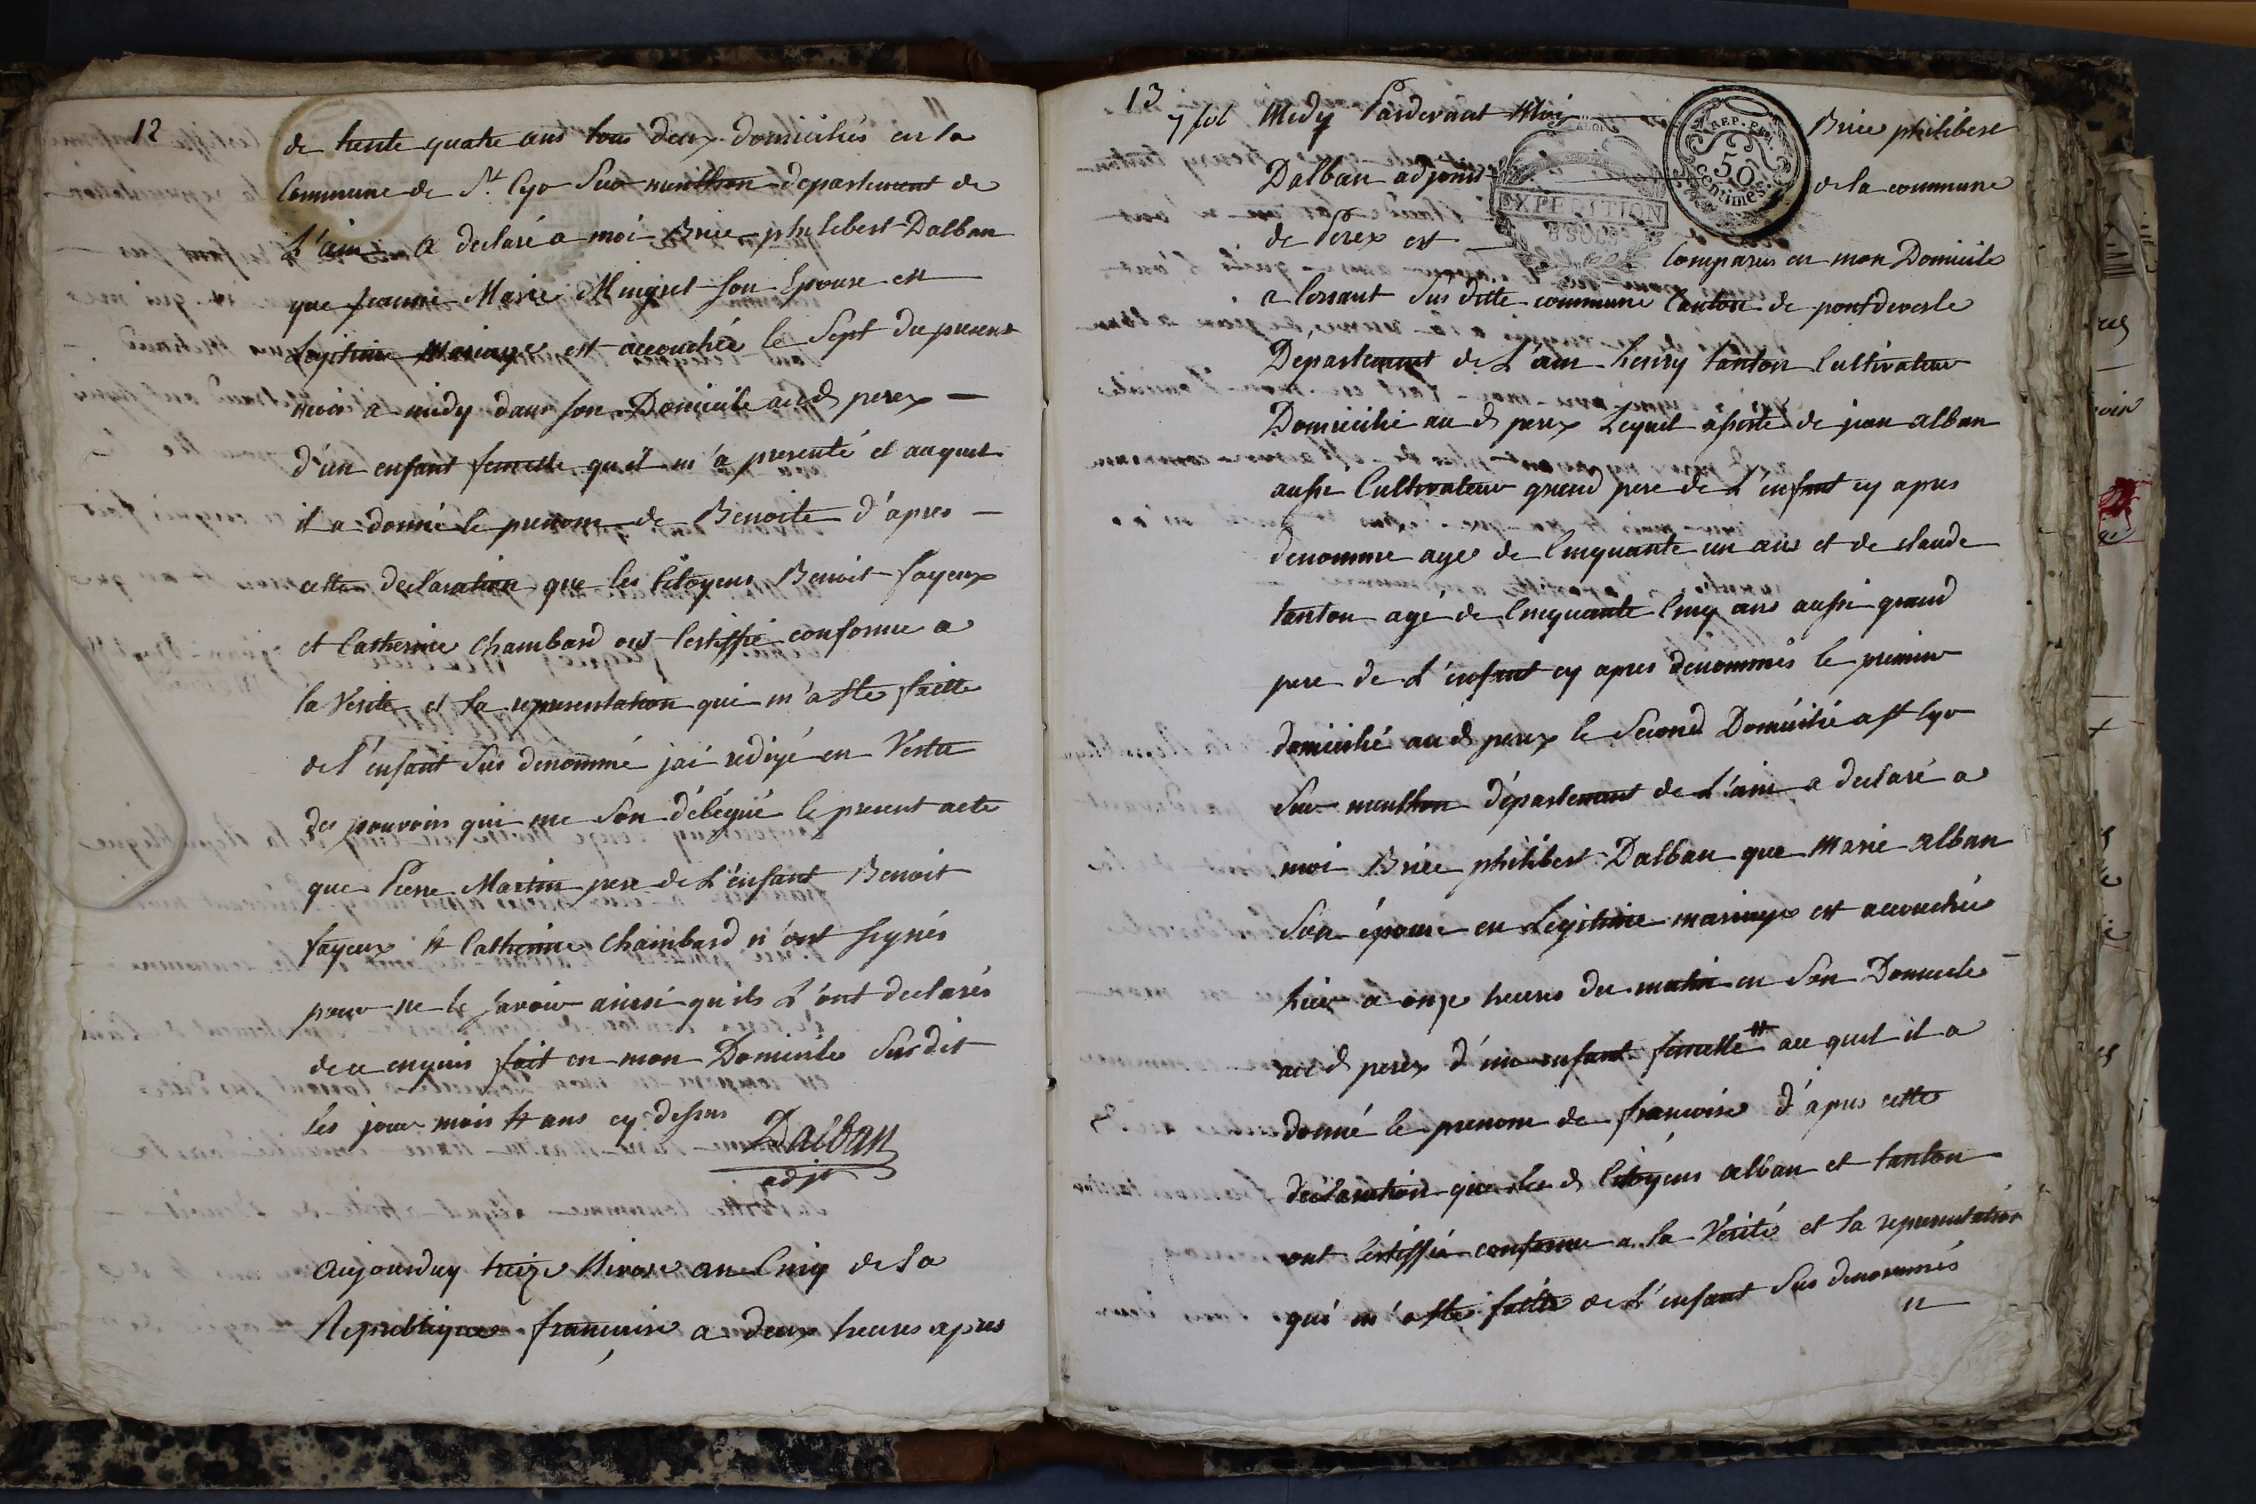 12
de trente quatre ans tous deux domiciliés en la
Commune de St. Cyr Sur menthon departement de
L'ain a declaré a moi Brice philebert Dalban
que jeanne Marie Mingret son Epouse en
Legitime Mariage est accouchée le Sept du present
mois a midy dans son Domicile aud perex
d'un enfant femelle qu'il m'a presenté et auquel
il a donné le prenom de Benoite d'apres
cette declaration que les Citoyens Benoit fayeux
et Catherine Chambard ont Certiffié conforme a
la Verité et la representation qui m'a Ete faitte
de l'enfant Sus denommé jai redigé en Vertu
des pouvoirs qui me Son délégué le present acte
que Pierre Martin pere de L'enfant Benoit
fayeux et Catherine Chambard n'ont signés
pour ne le Savoir ainsi qu'ils L'ont declarés
de ce enquis fait en mon Domicile Susdit
Les jour mois et ans cy dessus
Dalban
adjt
aujourduy treize Nivose an Cinq de la
Republique francaise a deux heures apres
13
7 fol Midy Pardevant Moi Brice philibert
REP. FRA.
50
centimes.
Dalban adjoint de la commune
EXPEDITION
8 SOLS
de Perex est Comparus en mon Domicile
a Corsant Sus ditte commune Canton de pontdevesle
Département de L'ain henry tanton Cultivateur
Domicilié au d perex Lequel assisté de jean alban
aussi Cultivateur grand pere de L'enfant cy apres
denomme agé de Cinquante un ans et de claude
tanton agé de Cinquante Cinq ans aussi grand
pere de L'enfant cy apres denommés le premier
domicilié au d perex le Second Domicilié a st Cyr
Sur menthon département de L'ain a declaré a
moi Brice philibert Dalban que Marie alban
Son épouse en Legitime mariage est accouchée
hier a onze heures du matin en Son Domicile
au d perex d'un enfant femelle # au quel il a
donné le prenom de francoise d'apres cette
declaration que les d Citoyens alban et tanton
ont Certiffié conforme a la Verité et la representation
qui m'a Ete faitte de L'enfant Sus denommés